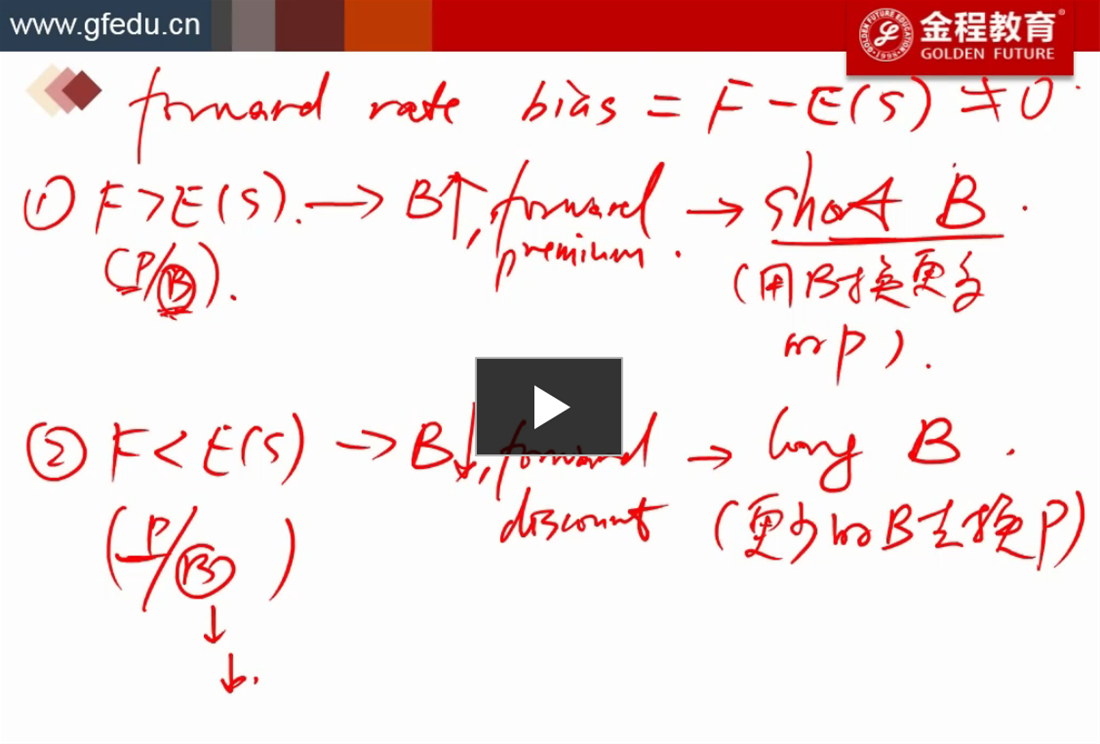 www.gfedu.cn
金程教育®
GOLDEN FUTURE
GOLDEN FUTURE EDUCATION
forward rate bias = F - E(S) ≠ 0
① F > E(S). → B↑, forward premium. → short B.
(P/B).
(用B换更多
的P).
② F < E(S) → B↓, forward discount → long B.
(P/B)
(更少的B去换P)
↓
↓.